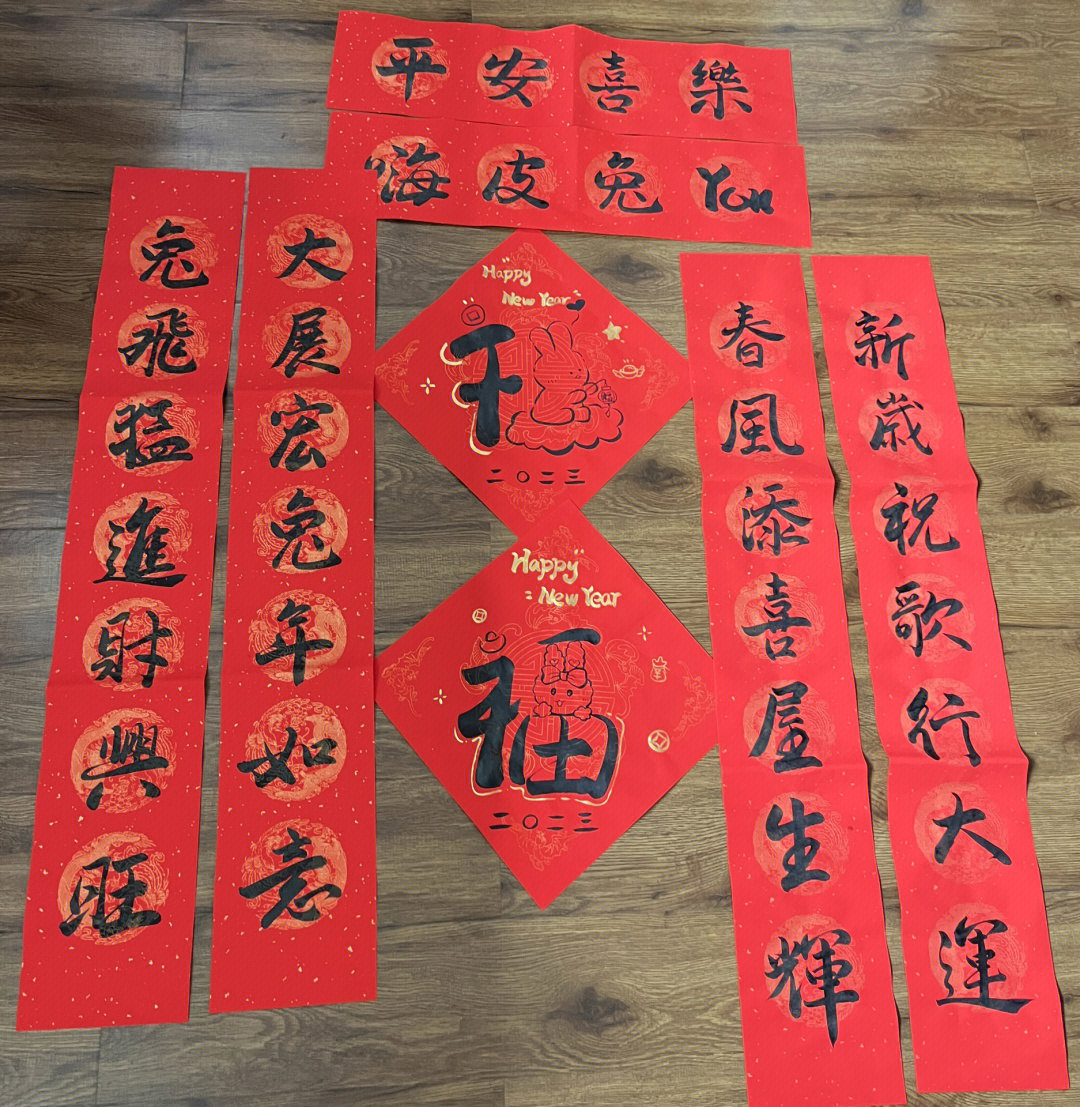 平安喜樂
嗨皮兔You
兔飛猛進財興旺
大展宏兔年如意
Happy
New Year
二〇二三
Happy
New Year
福
二〇二三
春風添喜屋生輝
新歲祝歌行大運